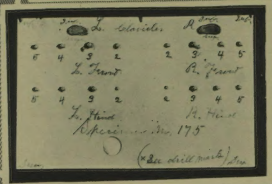 L. Clavicle. R.
5 4 3 2 2 3 4 5
L. Front R. Front
5 4 3 2 2 3 4 5
L. Hind R. Hind
Specimen No. 175
(* See drill marks)